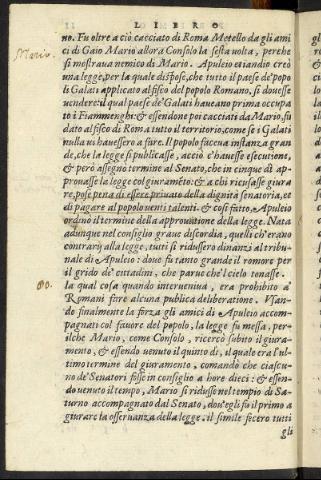 LIBRO
no. Fu oltre a ciò cacciato di Roma Metello da gli ami
ci di Gaio Mario allora Consolo la sesta volta, perche
Mario.
si mostraua nemico di Mario. Apuleio etiandio creò
una legge, per la quale dispose, che tutto il paese de' popo
li Galati applicato al fisco del popolo Romano, si douesse
uendere: il qual paese de' Galati haueano prima occupa
to i Fiammenghi: & essendone poi cacciati da Mario, fu
dato al fisco di Roma tutto il territorio, come se i Galati
nulla ui hauessero a fare. Il popolo faceua instanza gran
de, che la legge si publicasse, acciò c'hauesse esecutione,
& però assegno termine al Senato, che in cinque dì ap-
prouasse la legge col giuraméto: & a chi ricusasse giura
re, pose pena di essere priuato della dignità senatoria, et
di pagare al popolo uenti talenti. & così fatto, Apuleio
ordinò il termine della approuatione della legge. Nata
adunque nel consiglio graue discordia, quelli ch'erano
contrarij alla legge, tutti si ridussero dinanzi al tribu-
nale di Apuleio: doue fu tanto grande il romore per
il grido de' cittadini, che parue che'l cielo tenasse.
la qual cosa quando interueniua, era prohibito a'
Romani fare alcuna publica deliberatione. Vsan-
do finalmente la forza gli amici di Apuleio accom-
pagnati col fauore del popolo, la legge fu messa, per-
ilche Mario, come Consolo, ricercò subito il giura-
mento, & essendo uenuto il quinto dì, il quale era l'ul-
timo termine del giuramento, comandò che ciascu-
no de' Senatori fosse in consiglio a hore dieci: & essen-
do uenuto il tempo, Mario si ridusse nel tempio di Sa-
turno accompagnato dal Senato, dou'egli fu il primo a
giurare la osseruanza della legge. il simile fecero tutti
gli